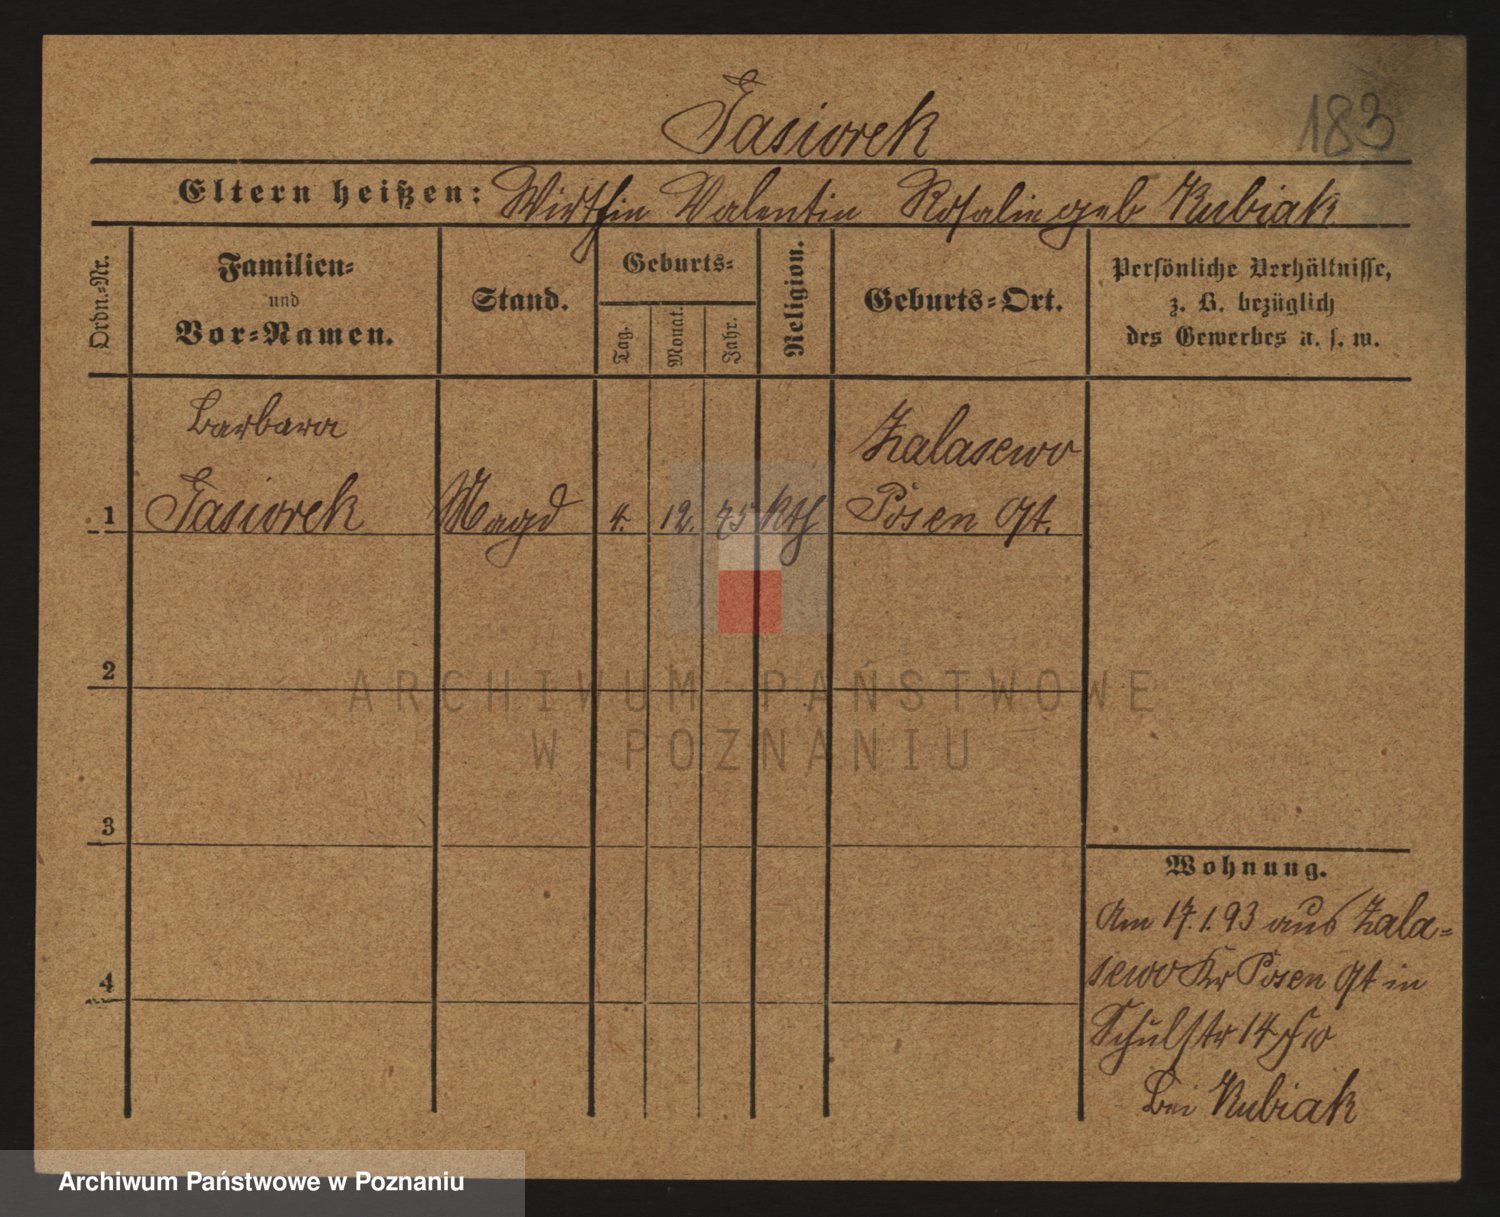 Jasiorek
183
Eltern heißen: Wirthin Valentin Rosalie geb Kubiak
Ordn.-Nr.
Familien- und Vor-Namen.
Stand.
Geburts-
Tag.
Monat.
Jahr.
Religion.
Geburts-Ort.
Persönliche Verhältnisse,
z. B. bezüglich
des Gewerbes u. s. w.
Barbara
Zalasewo
1 Jasiorek Magd 4. 12. 75 kth Posen Ost.
2
3
4
Wohnung.
Am 17.1.93 aus Zala=
sewo Kr Posen Ost in
Schulstr 14
bei Kubiak
ARCHIWUM PAŃSTWOWE
W POZNANIU
Archiwum Państwowe w Poznaniu